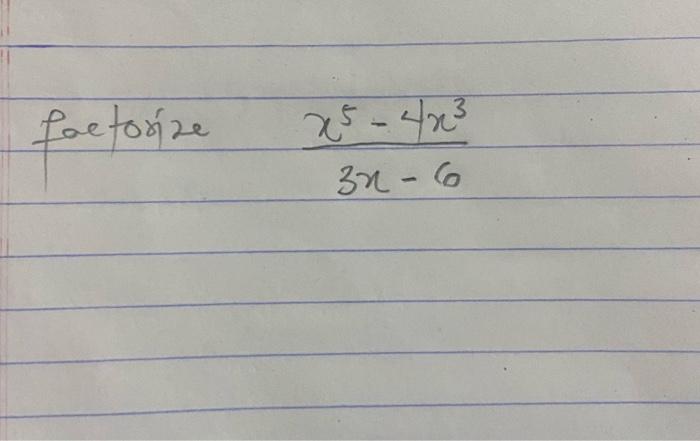 factorize x⁵ - 4x³
3x - 6